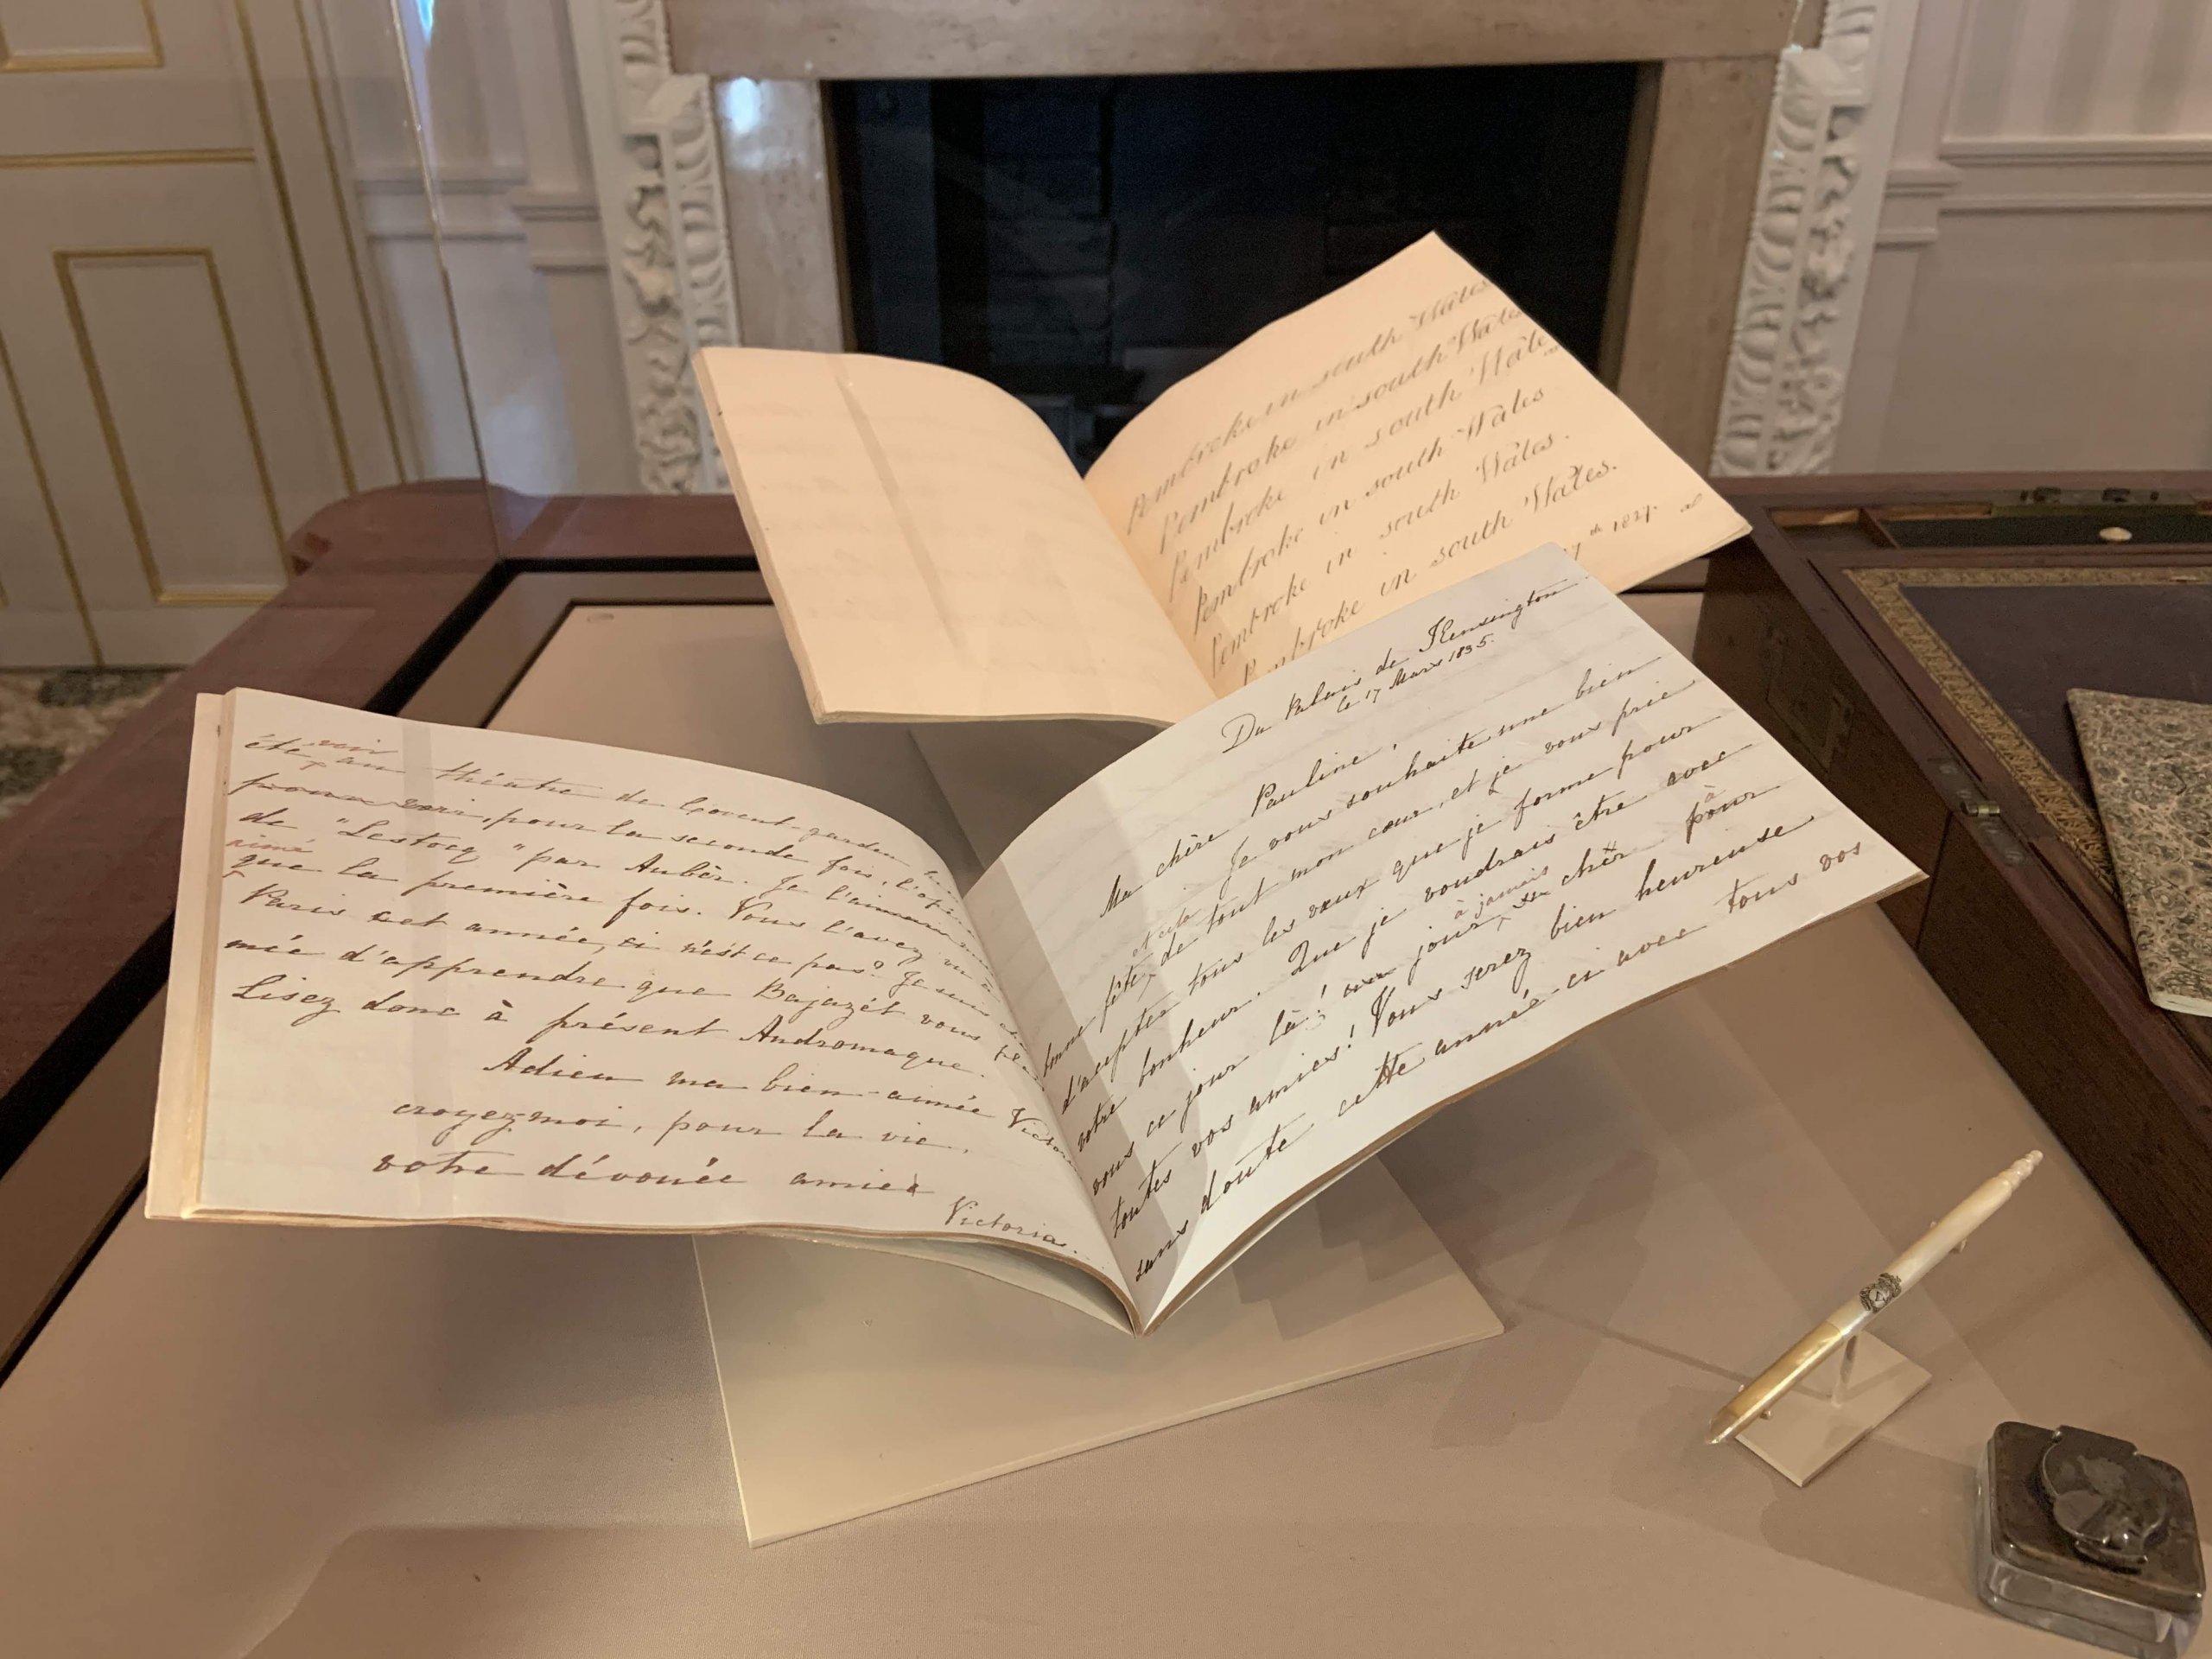 Pembroke in south Wales
Pembroke in south Wales
Pembroke in south Wales
Pembroke in south Wales
Pembroke in south Wales.
Pembroke in south Wales.
7th 1827.
été voir au théatre de Covent-garden
pour la seconde fois, l'opéra
de "Lestocq" par Aubèr. Je l'aimé
que la première fois. Vous l'avez vu à
Paris cet année, n'est ce pas? Je suis
mée d'apprendre que Bajazét vous
Lisez donc à présent Andromaque.
Adieu ma bien-aimée Victoire
croyez-moi, pour la vie,
votre dévouée amie
Victoria.
Du Palais de Kensington
le 17 Mars 1835.
Ma chère Pauline,
Je vous souhaite une bien
bonne fête, et cela de tout mon cœur, et je vous prie
d'accepter tous les vœux que je forme pour
votre bonheur. Que je voudrais être avec
vous ce jour là! jour, à jamais chèr à pour
toutes vos amies! Vous serez bien heureuse
sans doute cette année-ci avec tous vos